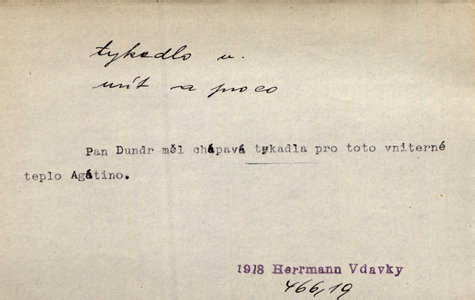 tykadlo n.
mít n pro co
Pan Dundr měl chápavá tykadla pro toto vniterné
teplo Agátino.
1918 Herrmann Vdavky
466,19